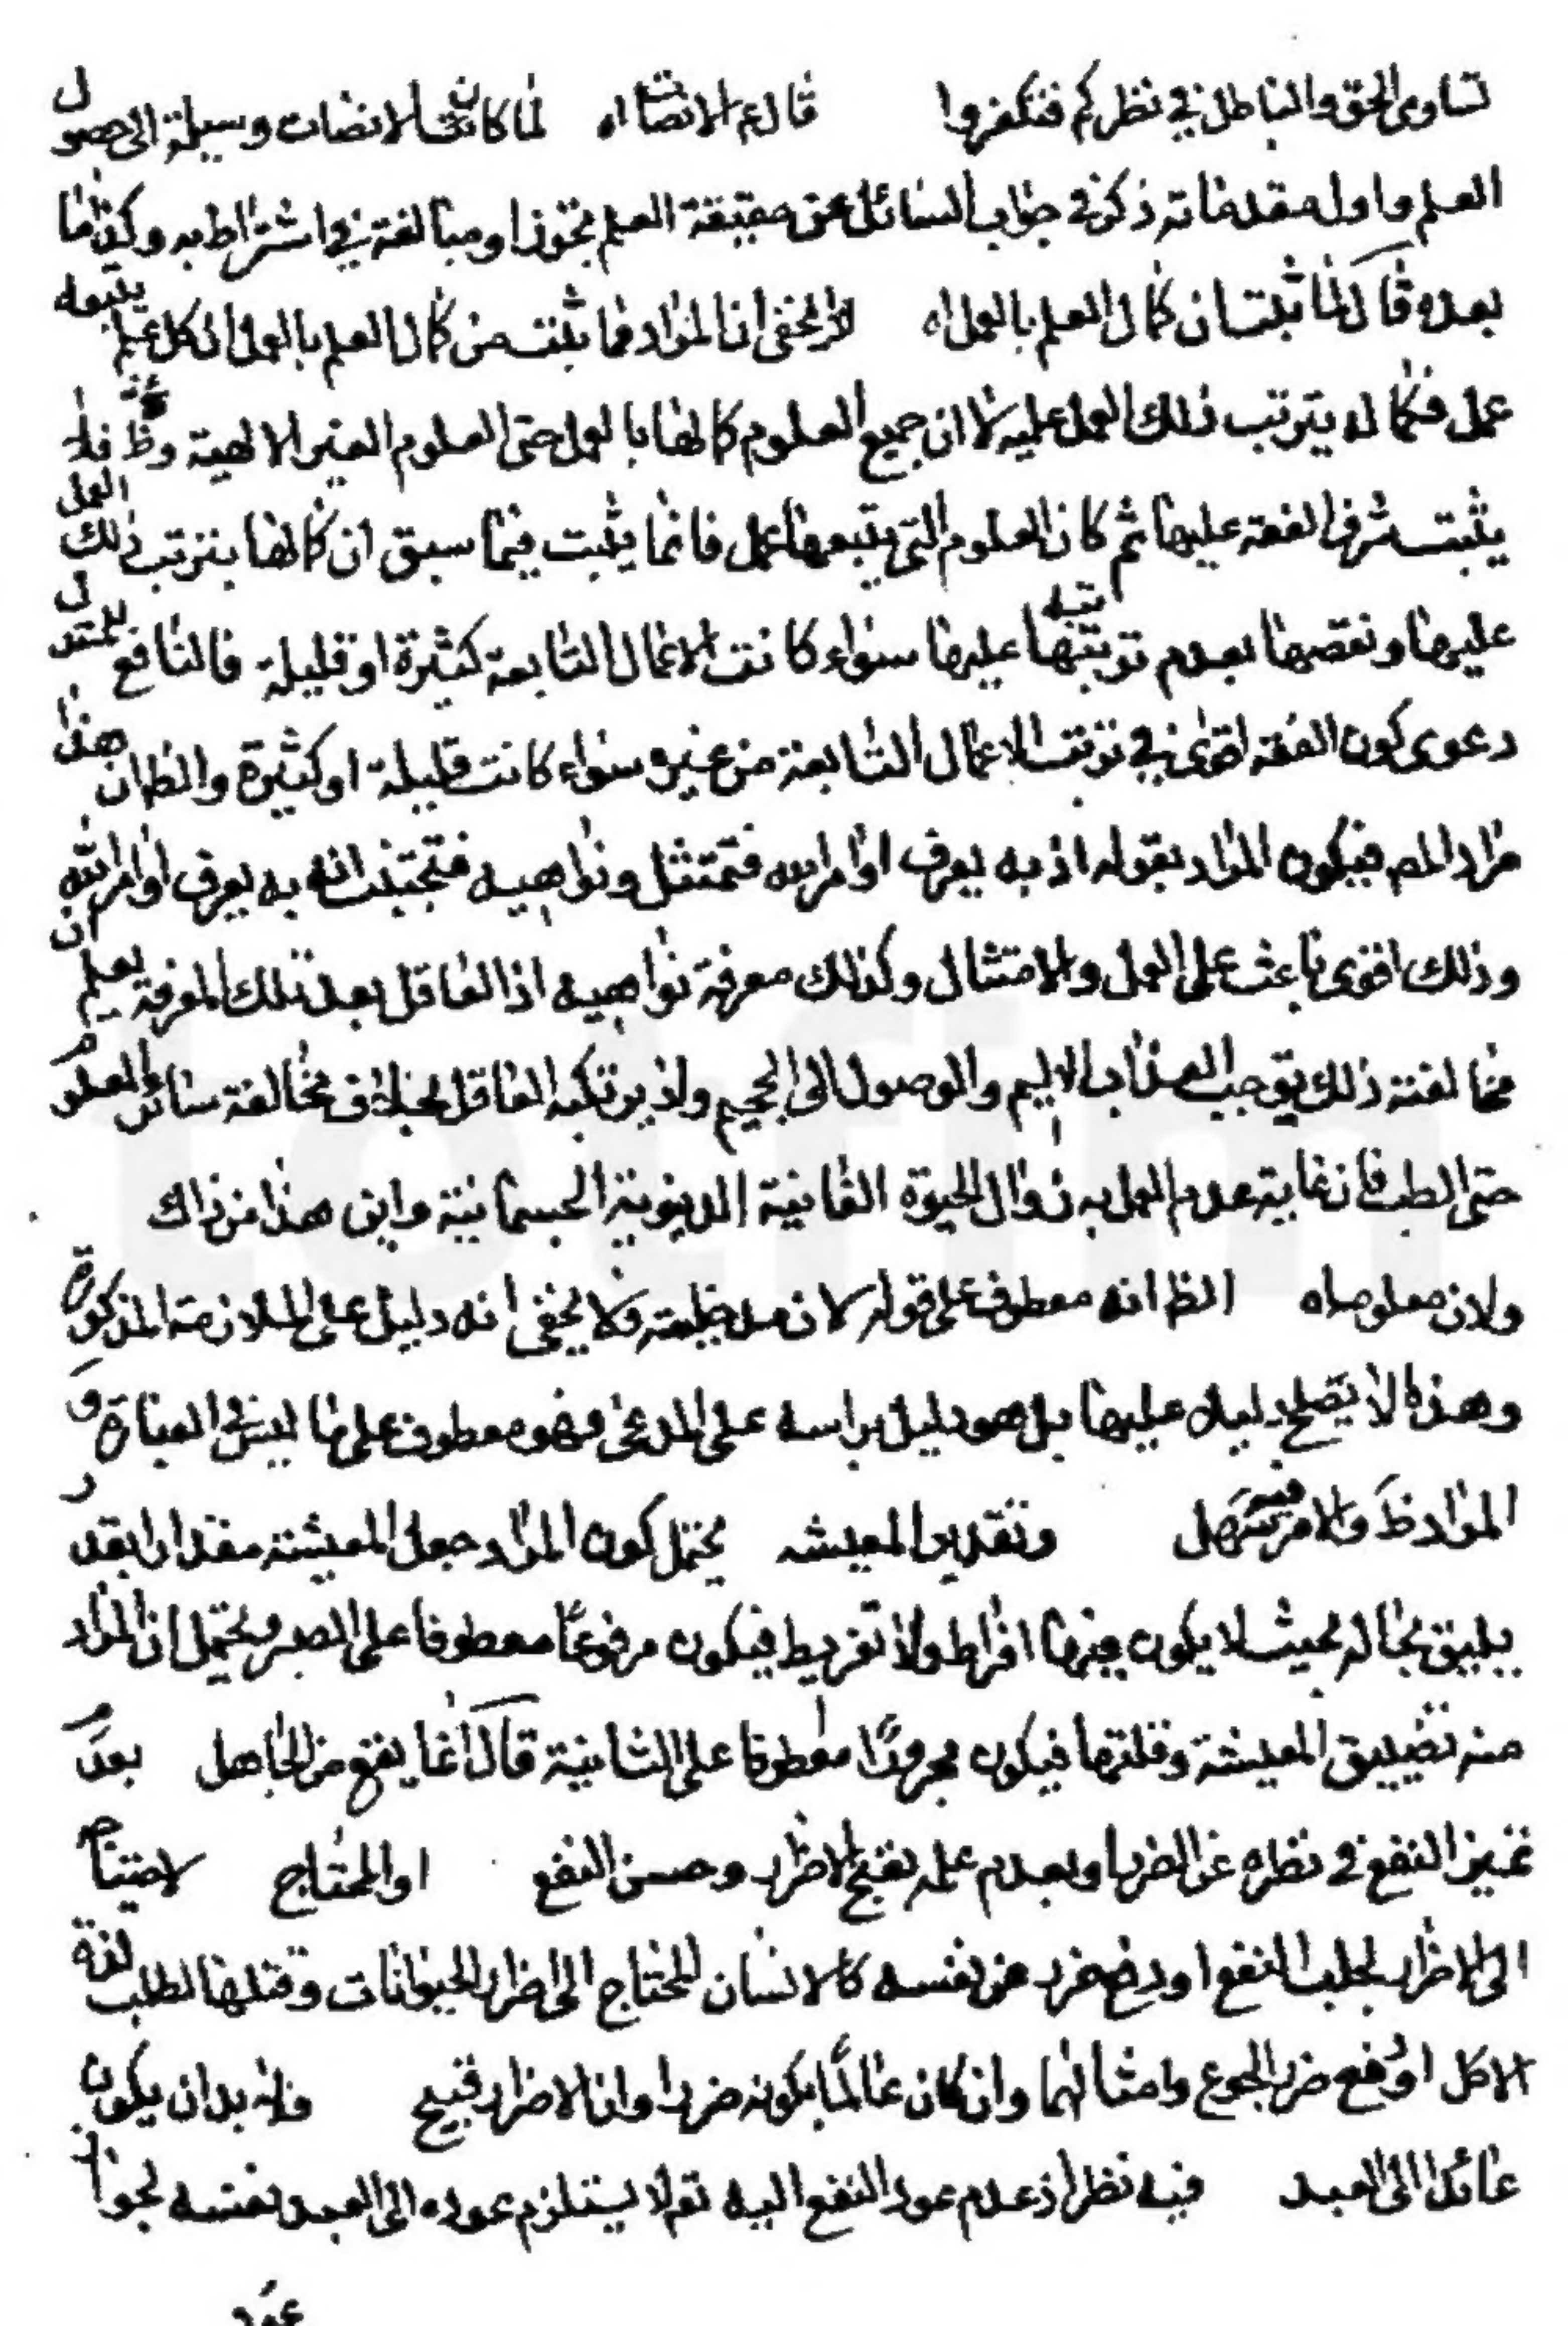 تساوى الحق والباطل في نظركم فتكفروا قال ع الانصات اه لما كانت الانصات وسيلة الى حصول
العلم واول مقدماته ذكره في جواب السائل عن حقيقة العلم تجوزا ومبالغة في اشتراطه به وكذا ما
بعده قال لما ثبت ان كمال العلم بالعمل اه لا يخفى ان المراد مما ثبت من كمال العلم بالعمل ان كل علم يتبعه
عمل فكماله يترتب ذلك العمل عليه لا ان جميع العلوم كمالها بالعمل حتى العلوم الغير الالهية وح فلا
يثبت شرف الفقه عليها ثم كان العلوم التي يتبعها عمل فانما يثبت فيما سبق ان كمالها بترتب ذلك العمل
عليها ونقصها بعدم ترتبها عليها سواء كانت الاعمال التابعة كثيرة او قليلة فالنافع للمستدل
دعوى كون الفقه اقوى في ترتب الاعمال التابعة من غيره سواء كانت قليلة او كثيرة والظ ان هذا
مراد المص فيكون المراد بقوله اذ به يعرف اوامر الله فتمتثل ونواهيه فتجتنب انه به يعرف اوامر الله
وذلك اقوى باعث على العمل والامتثال وكذلك معرفة نواهيه اذ العاقل بعد تلك المعرفة يعلم ان
مخالفة ذلك يوجب العذاب الاليم والوصول الى الجحيم ولا يرتكبه العاقل بخلاف مخالفة سائر العلوم
حتى الطب فان غاية عدم العمل به زوال الحيوة الفانية الدنيوية الجسمانية واين هذا من ذاك
ولان معلومه اه الظ انه معطوف على قوله لان مدخليته ولا يخفى انه دليل على الملازمة المذكورة
وهذا لا يصلح دليلا عليها بل هو دليل براسه على المدعى فهو معطوف على ما ليس في العبارة و
المراد ظ والامر فيه سهل وتقدير المعيشه يحتمل كون المراد جعل المعيشة مقدارا بقدر
يليق بحاله بحيث لا يكون فيها افراط ولا تفريط فيكون مرفوعا معطوفا على الصبر ويحتمل ان المراد
منه تضييق المعيشة وقلتها فيكون مجرورا معطوفا على النائبة قال انما يقع من الجاهل بعدم
تميز النفع في نظره عن الضر او بعدم علمه بقبح الاضرار وحسن النفع او المحتاج لاحتياجه
الى الاضرار لجلب النفع او دفع ضرر عن نفسه كالانسان المحتاج الى اضرار الحيوانات وقتلها لطلب لذة
الاكل او دفع ضرر الجوع وامثالهما وان كان عالما بكونه ضررا وان الاضرار قبيح فلا بد ان يكون
عائدا الى العبد فيه نظر اذ عدم عود النفع اليه تع لا يستلزم عوده الى العبد نفسه لجواز
عود